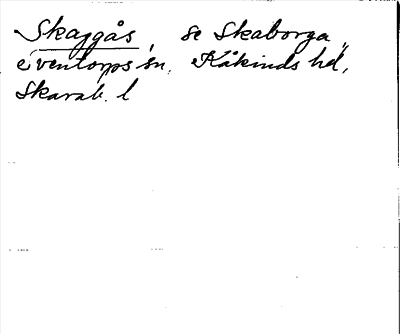 Skajgås, se Skaborga,
i Ventorps sn, Kåkinds hd,
Skarab. l